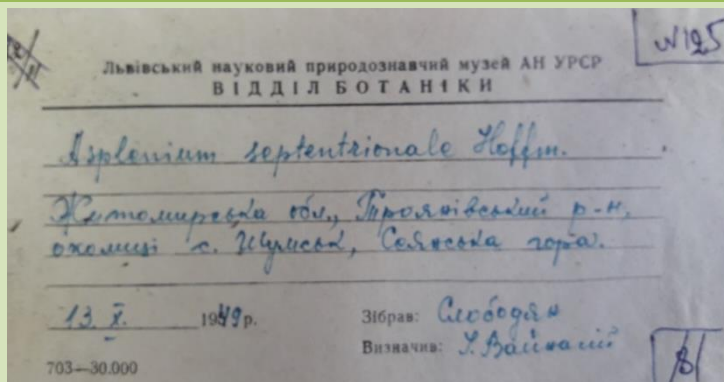 №125
Львівський науковий природознавчий музей АН УРСР
ВІДДІЛ БОТАНІКИ
Asplenium septentrionale Hoffm.
Житомирська обл., Троянівський р-н,
околиці с. Шумськ, гора.
13. X. 1949 р.
Зібрав: Слободян
Визначив:
703—30.000